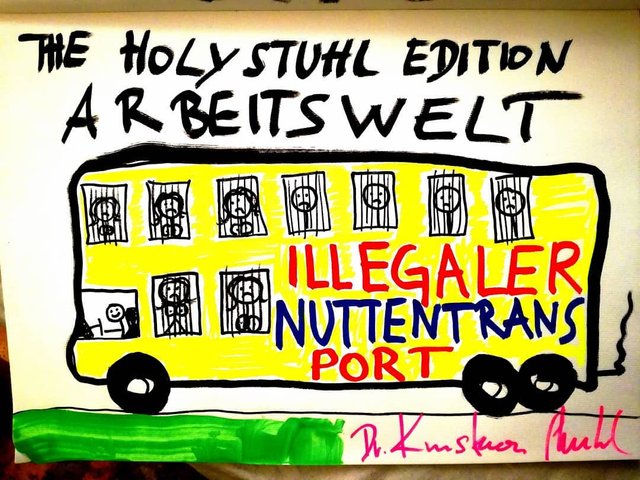 THE HOLYSTUHL EDITION
ARBEITSWELT
ILLEGALER
NUTTENTRANS
PORT
Dr.